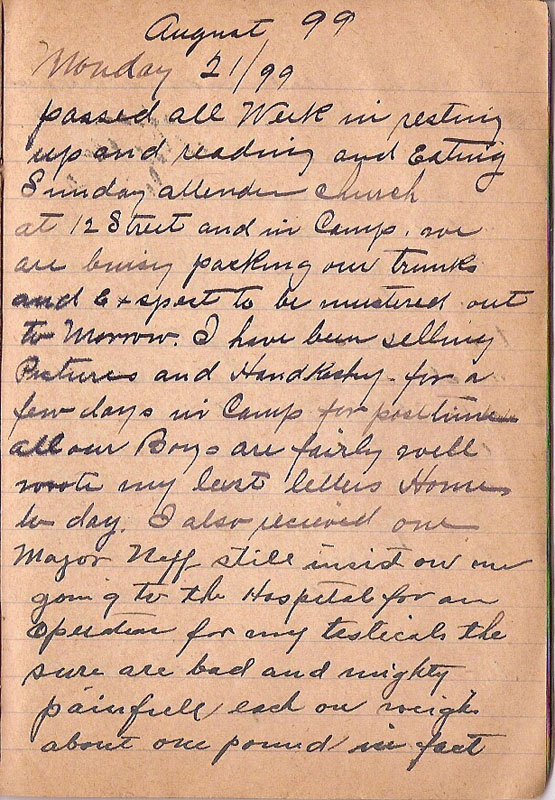 August 99
Monday 21/99
passed all Week in resting
up and reading and Eating
Sunday attended church
at 12 Street and in Camp. we
are buisy packing our trunks
and Expect to be mustered out
to Morrow. I have been selling
Pictures and Handkschy. for a
few days in Camp for pastime
all our Boys are fairly well
wrote my last letters Home
to day. I also recieved one
Major Neff still insist on me
going to the Hospital for an
Operation for my testicals the
sure are bad and mighty
painfull each on weighs
about one pound in fact